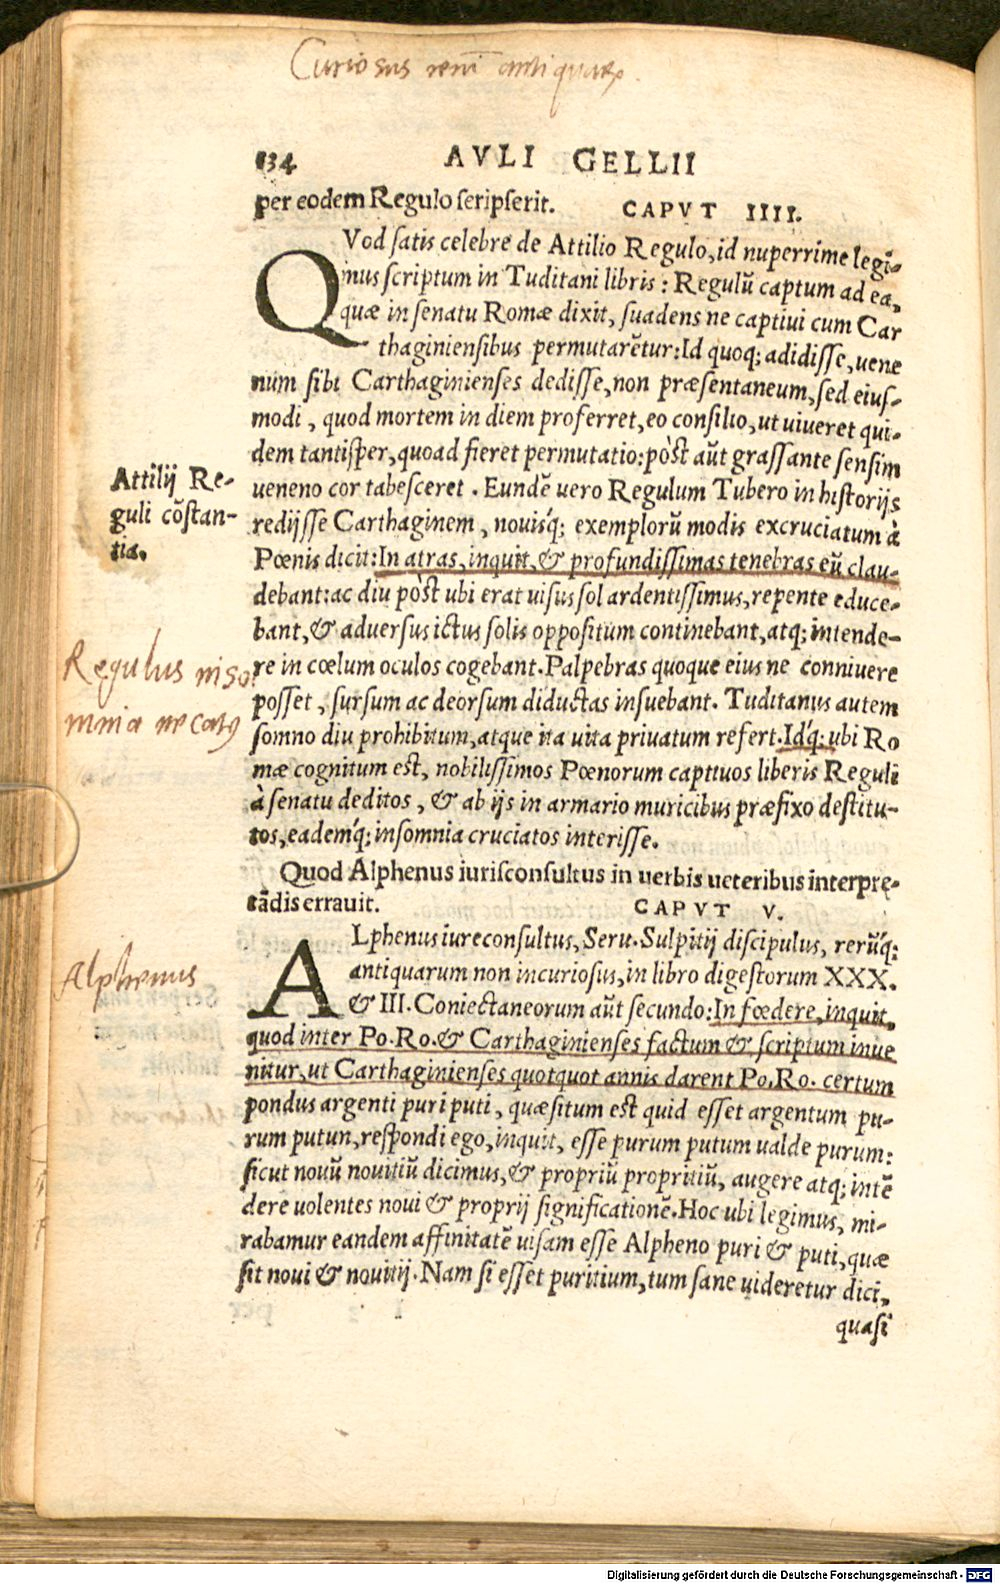 Curiosus rerū antiquarꝝ.
134 AVLI GELLII
per eodem Regulo scripserit. CAPVT IIII.
QVod satis celebre de Attilio Regulo, id nuperrime legi-
mus scriptum in Tuditani libris: Regulū captum ad ea,
quæ in senatu Romæ dixit, suadens ne captiui cum Car
thaginiensibus permutarētur: Id quoq; adidisse, uene
num sibi Carthaginienses dedisse, non præsentaneum, sed eius-
modi, quod mortem in diem proferret, eo consilio, ut uiueret qui-
dem tantisper, quoad fieret permutatio: pòst aūt grassante sensim
ueneno cor tabesceret. Eundē uero Regulum Tubero in historijs
redijsse Carthaginem, nouisq́; exemplorū modis excruciatum à
Pœnis dicit: In atras, inquit, & profundissimas tenebras eū clau-
debant: ac diu pòst ubi erat uisus sol ardentissimus, repente educe-
bant, & aduersus ictus solis oppositum continebant, atq; intende-
re in cœlum oculos cogebant. Palpebras quoque eius ne conniuere
posset, sursum ac deorsum diductas insuebant. Tuditanus autem
somno diu prohibitum, atque ita uita priuatum refert. Idq́; ubi Ro
mæ cognitum est, nobilissimos Pœnorum captiuos liberis Reguli
à senatu deditos, & ab ijs in armario muricibus præfixo destitu-
tos, eademq́; insomnia cruciatos interisse.
Attilij Re-
guli cōstan-
tia.
Regulus inso
mnia necatꝰ
Quod Alphenus iurisconsultus in uerbis ueteribus interprę-
tādis errauit. CAPVT V.
ALphenus iureconsultus, Seru. Sulpitij discipulus, rerūq́;
antiquarum non incuriosus, in libro digestorum XXX.
& III. Coniectaneorum aūt secundo: In fœdere, inquit,
quod inter Po. Ro. & Carthaginienses factum & scriptum inue
nitur, ut Carthaginienses quotquot annis darent Po. Ro. certum
pondus argenti puri puti, quæsitum est quid esset argentum pu-
rum putun, respondi ego, inquit, esse purum putum ualde purum:
sicut nouū nouitiū dicimus, & propriū propritiū, augere atq; intē
dere uolentes noui & proprij significationē. Hoc ubi legimus, mi-
rabamur eandem affinitatē uisam esse Alpheno puri & puti, quæ
sit noui & nouitij. Nam si esset puritium, tum sane uideretur dici,
quasi
Alphenus
Digitalisierung gefördert durch die Deutsche Forschungsgemeinschaft - DFG